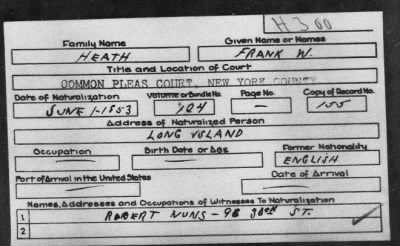 H 300
Family Name Given Name or Names
HEATH FRANK W.
Title and Location of Court
COMMON PLEAS COURT, NEW YORK COUNTY
Date of Naturalization Volume or Bundle No. Page No. Copy of Record No.
JUNE 1-1853 124 — 155
Address of Naturalized Person
LONG ISLAND
Occupation Birth Date or Age Former Nationality
— — ENGLISH
Port of Arrival in the United States Date of Arrival
— —
Names, Addresses and Occupations of Witnesses To Naturalization
1 ROBERT NUNS - 96 ST.
2